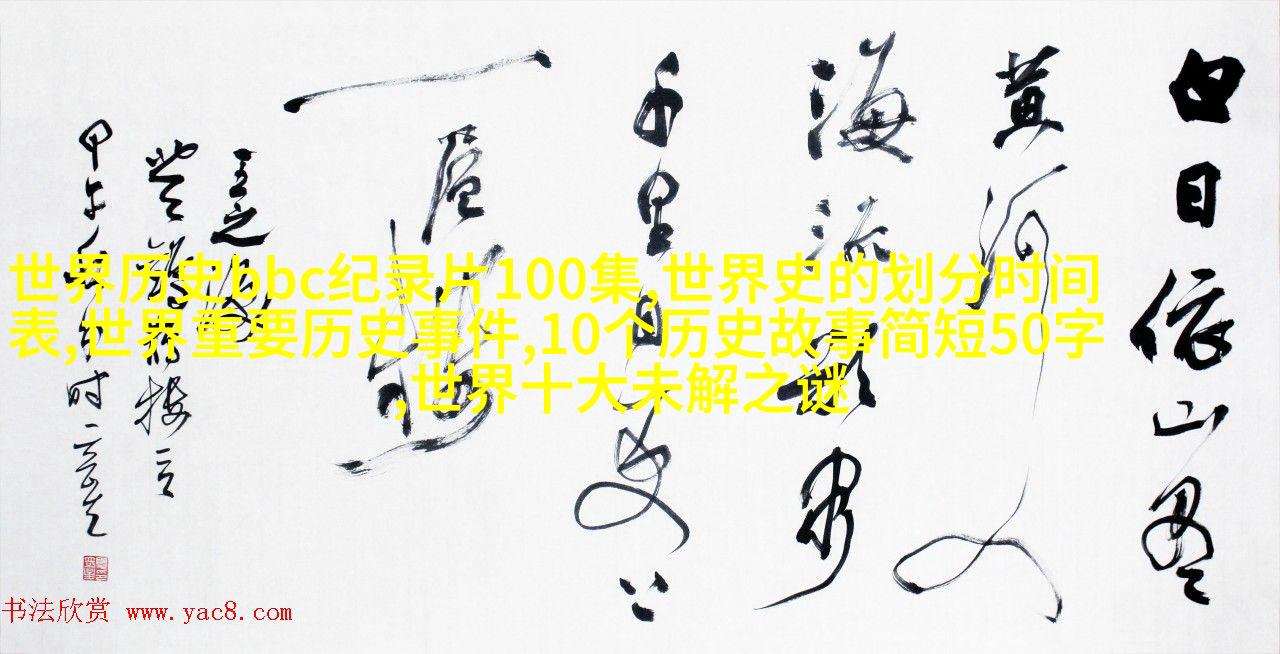 白日依山尽
黄河入
海流欲穷
千里目更上
一层楼
王之涣
登鹳雀楼
甲午
时
世界历史bbc纪录片100集,世界史的划分时间
表,世界重要历史事件,10个历史故事简短50字
,世界十大未解之谜
书法欣赏 www.yac8.com